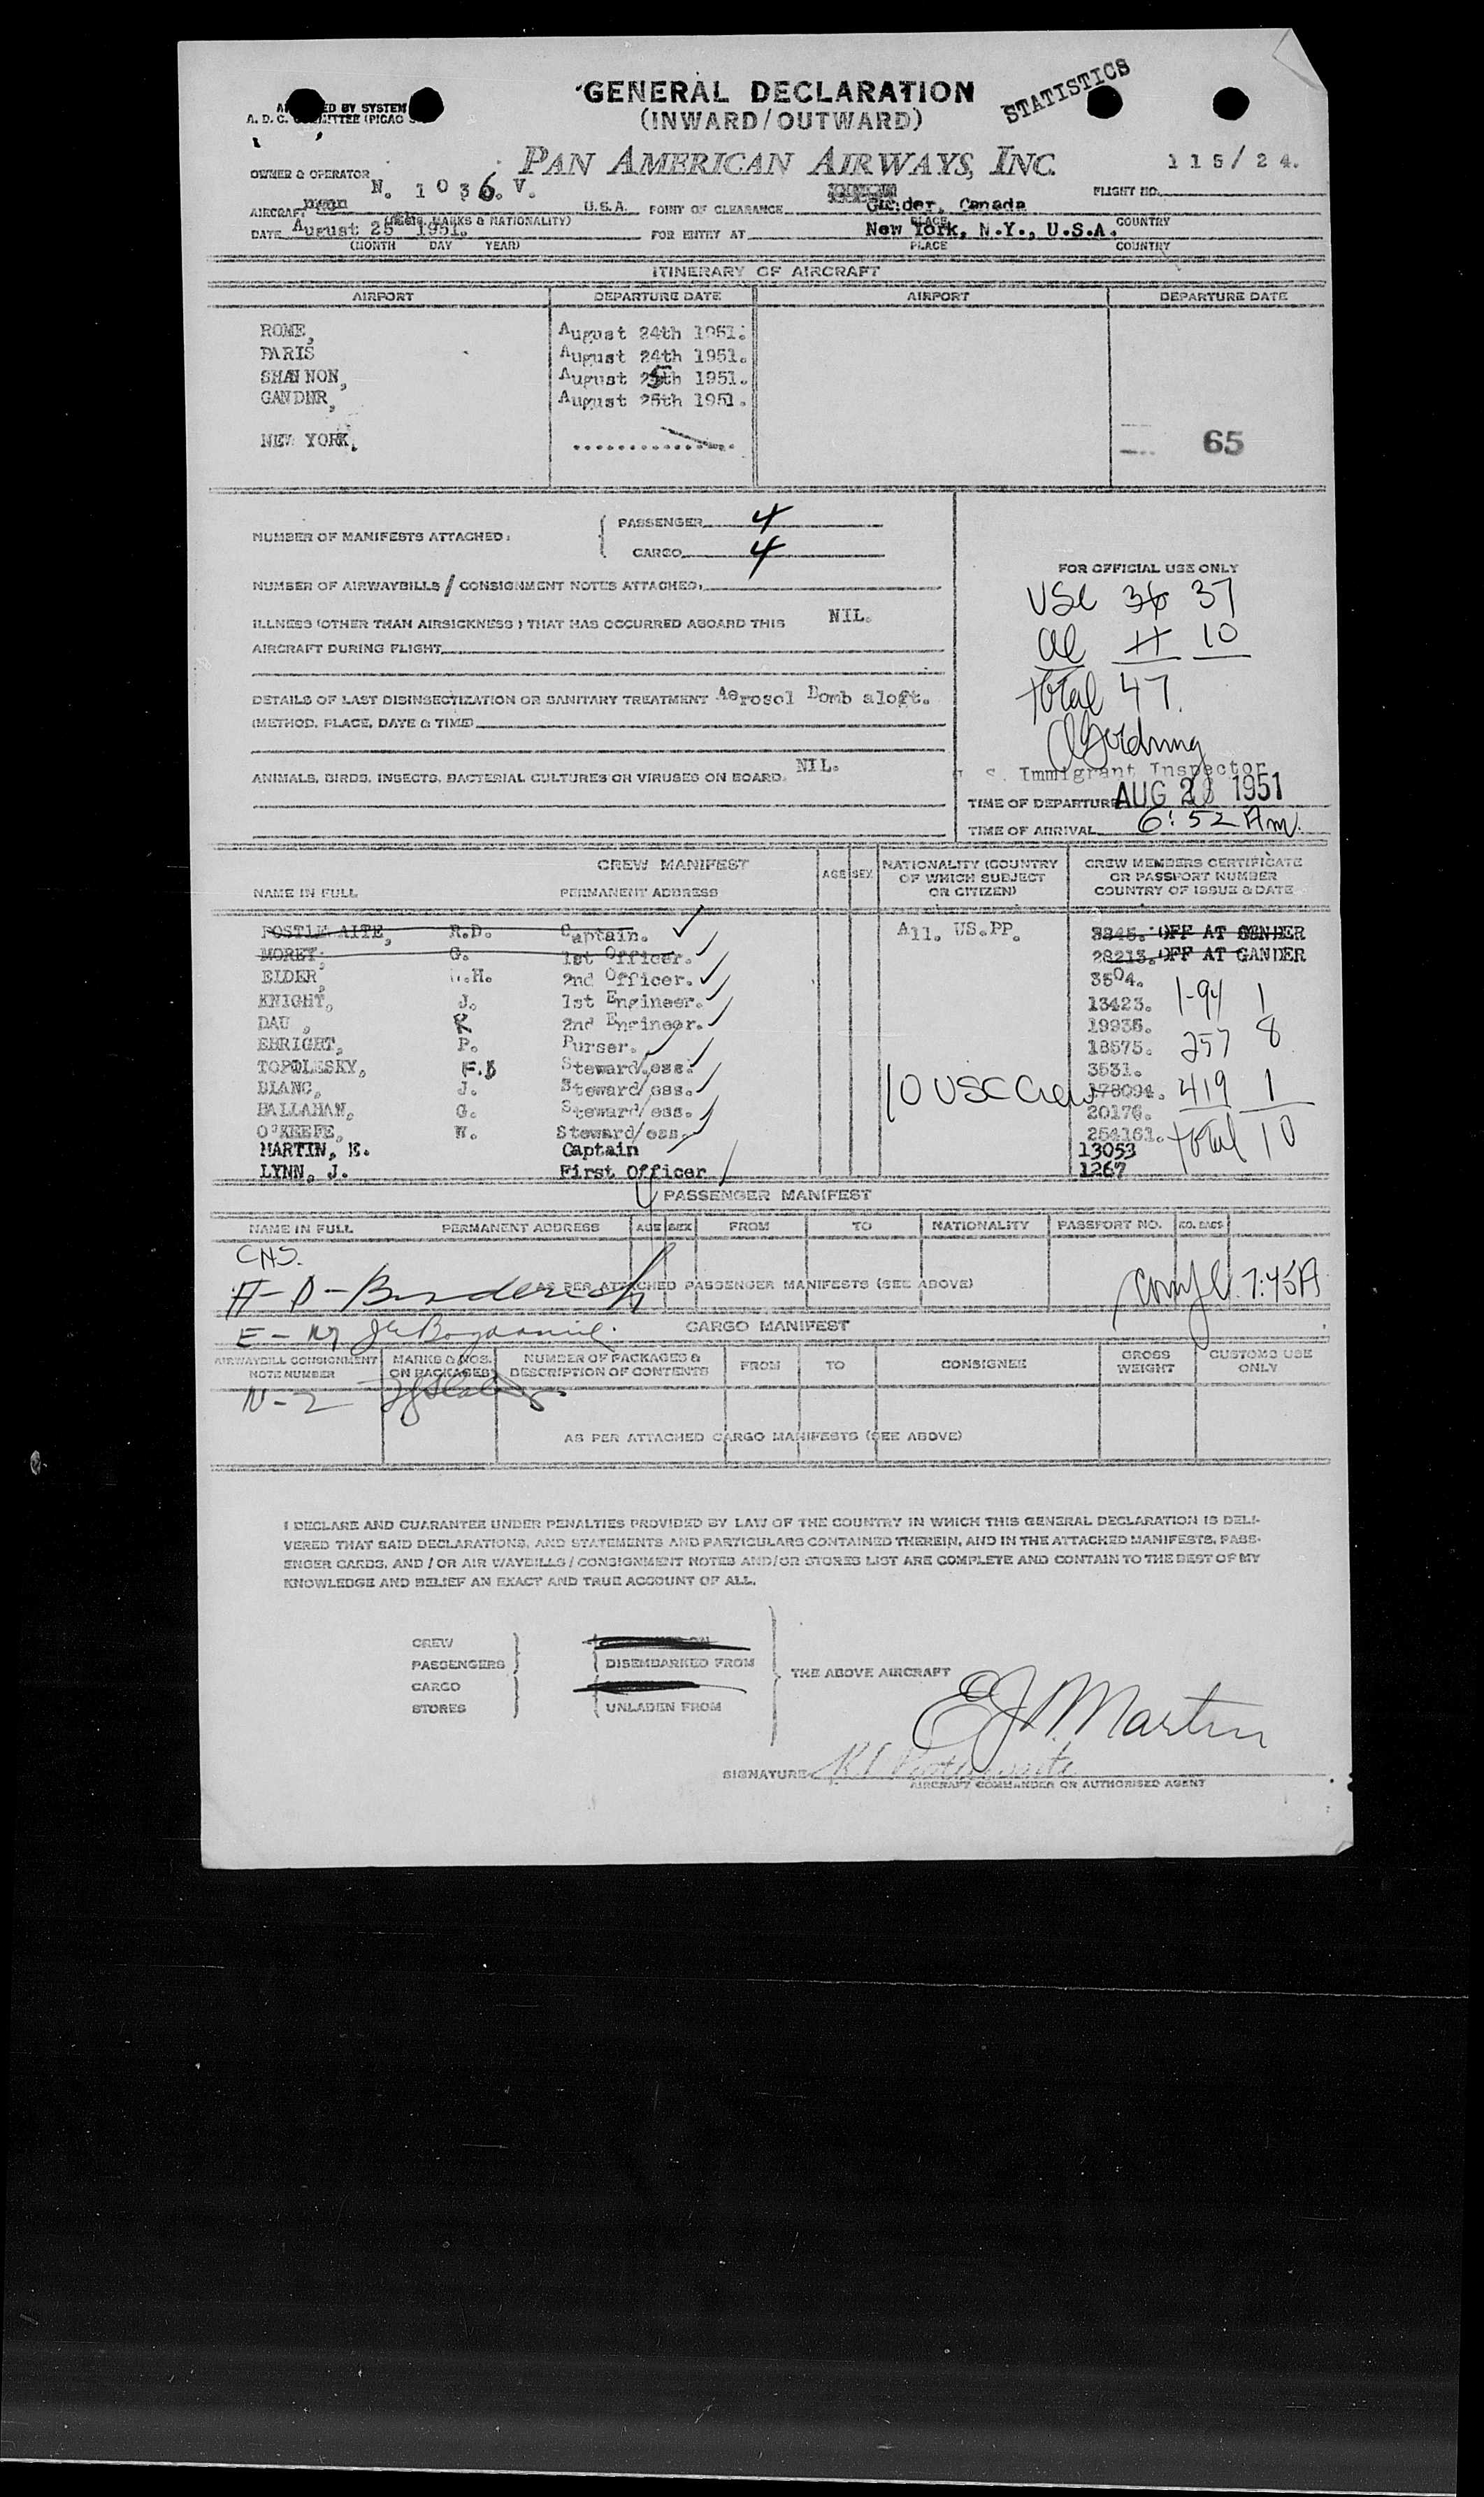 GENERAL DECLARATION
(INWARD/OUTWARD)
STATISTICS
BY SYSTEM
A. D. C. (PICAO
PAN AMERICAN AIRWAYS, INC.
115/24.
OWNER & OPERATOR
N. 1036.V.
FLIGHT NO.
AIRCRAFT U.S.A. POINT OF CLEARANCE Gander, Canada
MARKS & NATIONALITY) PLACE COUNTRY
DATE August 25 1951. FOR ENTRY AT New York, N.Y., U.S.A.
(MONTH DAY YEAR) PLACE COUNTRY
ITINERARY OF AIRCRAFT
AIRPORT DEPARTURE DATE AIRPORT DEPARTURE DATE
ROME, August 24th 1951.
PARIS August 24th 1951.
SHANNON, August 25th 1951.
GANDER, August 25th 1951.
NEW YORK. ...............
65
NUMBER OF MANIFESTS ATTACHED: { PASSENGER 4
CARGO 4
NUMBER OF AIRWAYBILLS / CONSIGNMENT NOTES ATTACHED:
ILLNESS (OTHER THAN AIRSICKNESS) THAT HAS OCCURRED ABOARD THIS NIL.
AIRCRAFT DURING FLIGHT
DETAILS OF LAST DISINSECTIZATION OR SANITARY TREATMENT Aerosol Bomb aloft.
(METHOD, PLACE, DATE & TIME)
ANIMALS, BIRDS, INSECTS, BACTERIAL CULTURES OR VIRUSES ON BOARD. NIL.
FOR OFFICIAL USE ONLY
USC 36 37
al 11 10
total 47.
S. Immigrant Inspector
TIME OF DEPARTURE AUG 1951
TIME OF ARRIVAL 6:52 Am.
CREW MANIFEST
NAME IN FULL PERMANENT ADDRESS AGE SEX NATIONALITY (COUNTRY OF WHICH SUBJECT OR CITIZEN) CREW MEMBERS CERTIFICATE OR PASSPORT NUMBER COUNTRY OF ISSUE & DATE
R.D. Captain. All. US.PP. OFF AT GANDER
MORET, G. 1st Officer. 28213. OFF AT GANDER
ELDER, .H. 2nd Officer. 3504.
KNIGHT, J. 1st Engineer. 13423. 1-94 1
DAU, R 2nd Engineer. 19936.
EBRIGHT, P. Purser. 18575. 257 8
TOPOLESKY, F. Steward/ess. 3531.
BLANC, J. Steward/ess. 10 USC Crew 178094. 419 1
BALLAHAN, G. Steward/ess. 20176.
O'KEEFE, W. Steward/ess. 254161. total 10
MARTIN, E. Captain 13053
LYNN, J. First Officer 1267
PASSENGER MANIFEST
NAME IN FULL PERMANENT ADDRESS AGE SEX FROM TO NATIONALITY PASSPORT NO. NO. BAGS
CNS.
AS PER ATTACHED PASSENGER MANIFESTS (SEE ABOVE)
7:45A
CARGO MANIFEST
AIRWAYBILL CONSIGNMENT NOTE NUMBER MARKS & NOS. ON PACKAGES NUMBER OF PACKAGES & DESCRIPTION OF CONTENTS FROM TO CONSIGNEE GROSS WEIGHT CUSTOMS USE ONLY
N-2
AS PER ATTACHED CARGO MANIFESTS (SEE ABOVE)
I DECLARE AND GUARANTEE UNDER PENALTIES PROVIDED BY LAW OF THE COUNTRY IN WHICH THIS GENERAL DECLARATION IS DELI-
VERED THAT SAID DECLARATIONS, AND STATEMENTS AND PARTICULARS CONTAINED THEREIN, AND IN THE ATTACHED MANIFESTS, PASS-
ENGER CARDS, AND / OR AIR WAYBILLS / CONSIGNMENT NOTES AND/OR STORES LIST ARE COMPLETE AND CONTAIN TO THE BEST OF MY
KNOWLEDGE AND BELIEF AN EXACT AND TRUE ACCOUNT OF ALL.
CREW
PASSENGERS DISEMBARKED FROM THE ABOVE AIRCRAFT
CARGO
STORES UNLADEN FROM
E J Martin
SIGNATURE
AIRCRAFT COMMANDER OR AUTHORISED AGENT